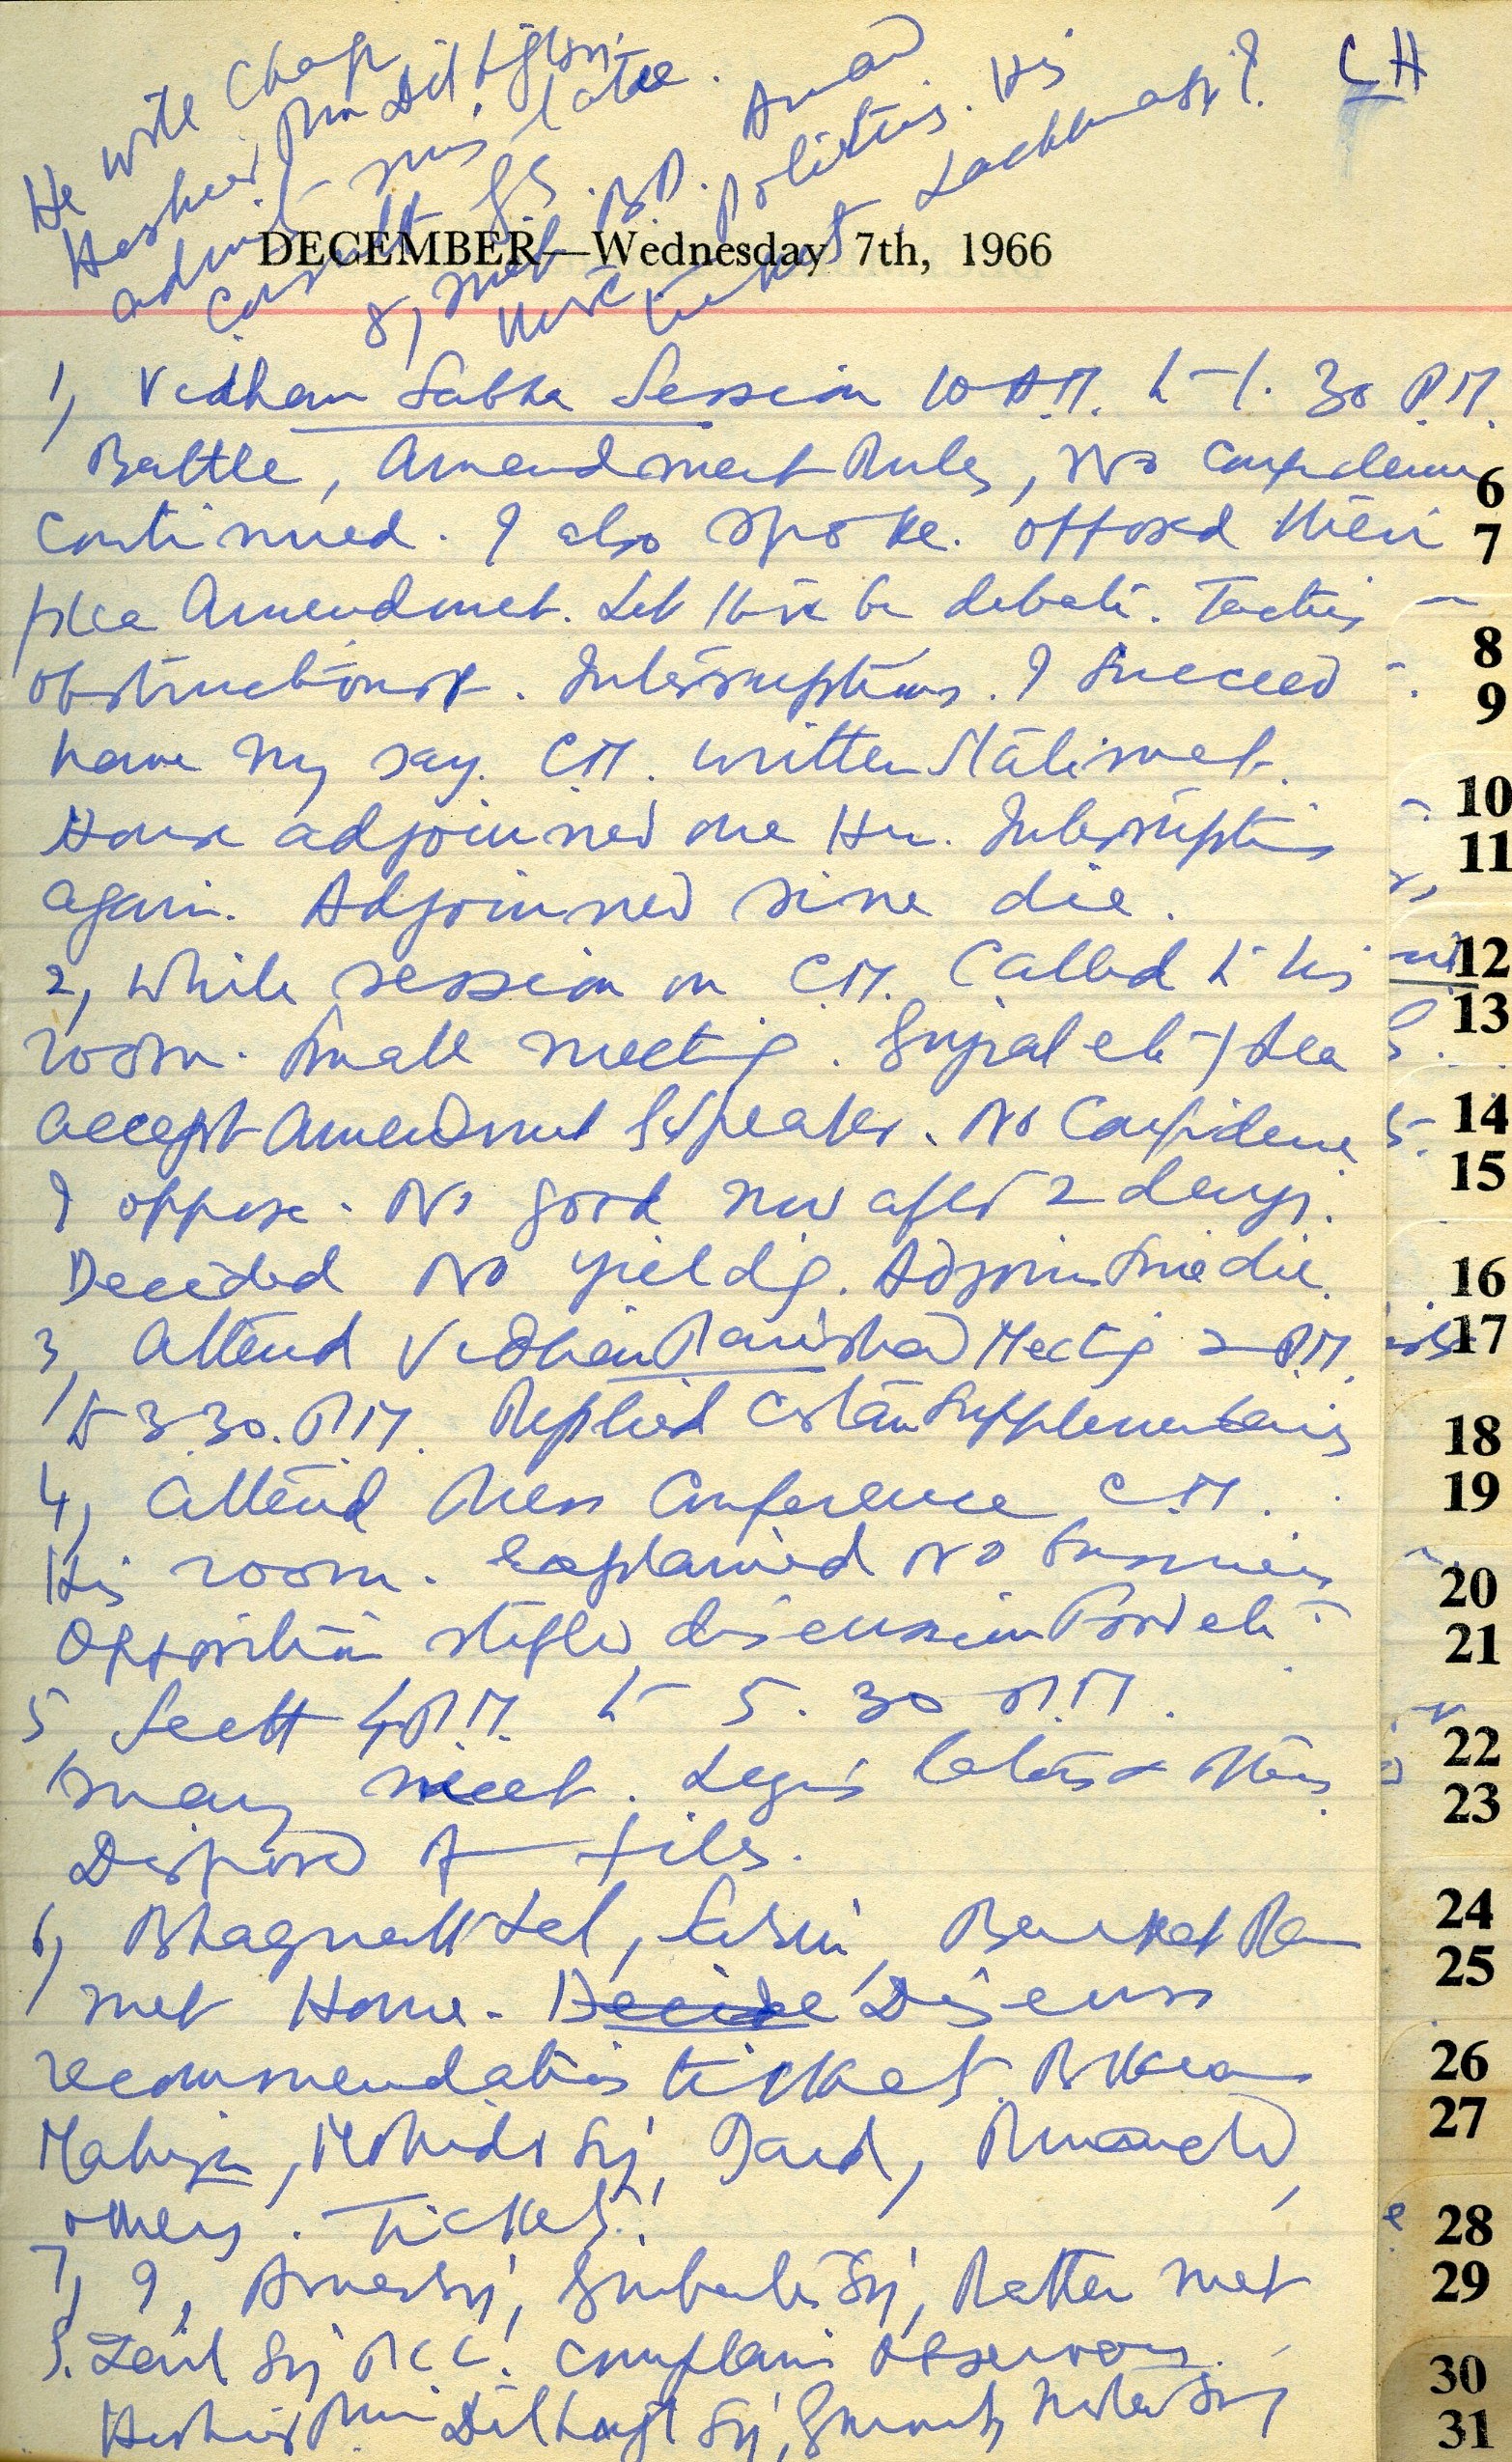 CH
He will
DECEMBER—Wednesday 7th, 1966
1, Vidhan Sabha Session 10 A.M. to 1.30 P.M.
Battle, Amendment Rules, No Confidence
continued. I also spoke. opposed their
plea Amendment. Let there be debate. Tactics
obstructionist. Interruptions. I succeed
have my say. C.M. written statement.
House adjourned one Hr. Interruptions
again. Adjourned sine die.
2, While session on C.M. called to his
room. Small meeting. Gujral etc plea
accept Amendment Speaker. No Confidence
I oppose. No good now after 2 days.
Decided No yielding. Adjourn Sine die.
3, Attend Vidhan Parishad Meeting 2 P.M.
to 3.30. P.M. Replied certain Supplementaries
4, Attend Press Conference C.M.
His room. Explained No business
Opposition stifled discussion Food etc
5, Sectt 4 P.M. to 5.30 P.M.
many meet. Legislators & others
Disposed of files.
6, Bhagnath Lal, Ram
met Home. Decide Discuss
recommendations ticket.
Mohinder Singh,
others. Tickets.
7, I, Gurbachan Singh, Rattan met
S. Zail Singh P.C.C. complain observers.
Dilbagh Singh,
8, met B.D.
politics. His
ticket,
6
7
8
9
10
11
12
13
14
15
16
17
18
19
20
21
22
23
24
25
26
27
28
29
30
31